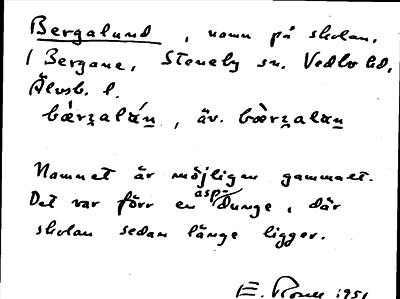 Bergalund, namn på skolan.
I Bergane, Steneby sn. Vedbo hd,
Älvsb. l.
bærzalán, äv. bærzalan
Namnet är möjligen gammalt.
Det var förr en aspdunge, där
skolan sedan länge ligger.
E. 1951